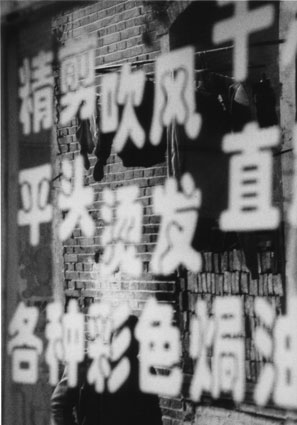 精剪吹风
平头烫发 直
各种彩色焗油